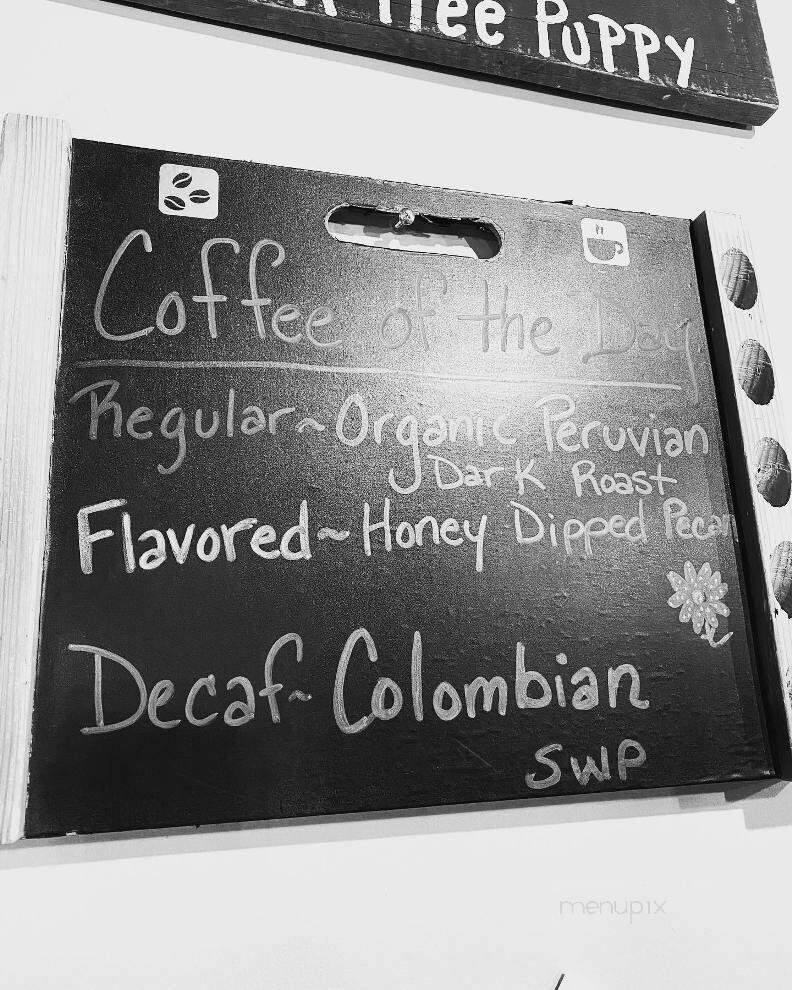 Free Puppy
Coffee of the Day
Regular~Organic Peruvian
Dark Roast
Flavored~Honey Dipped Pecan
Decaf~Colombian
SWP
menupix